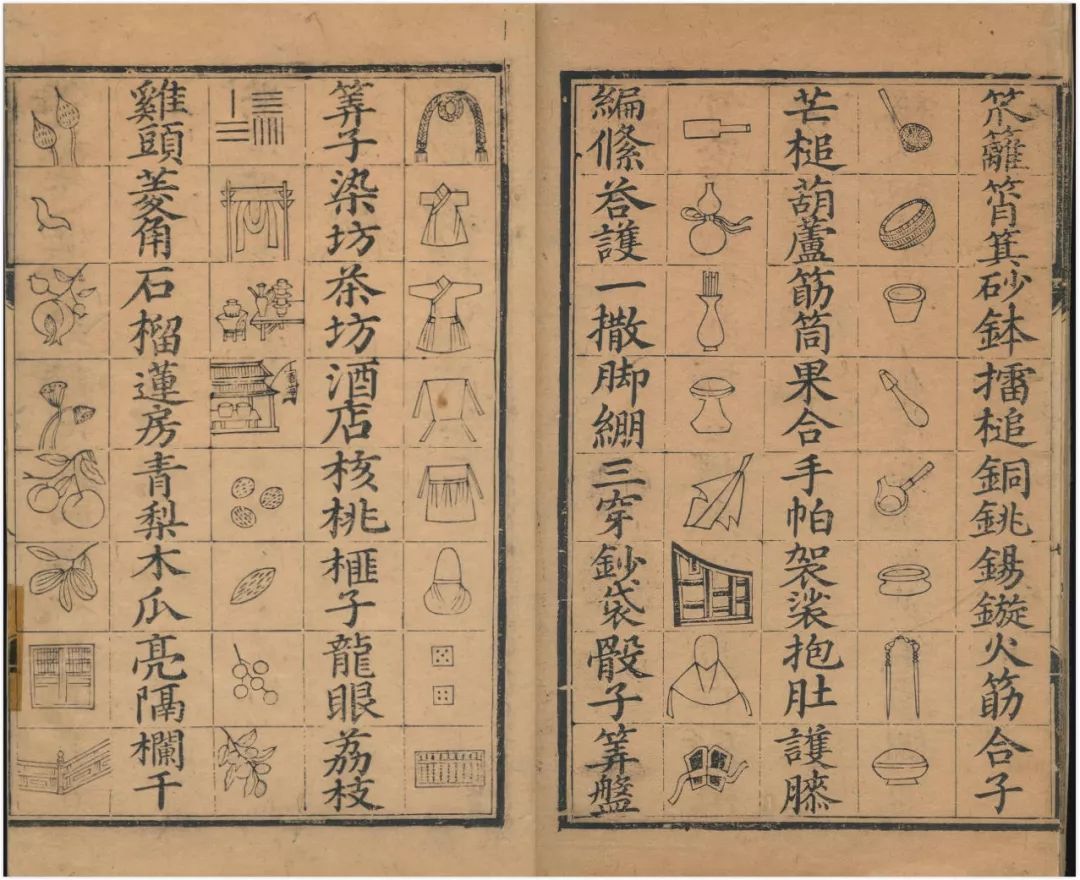 笊籬筲箕砂鉢擂槌銅銚錫鏇火筯合子
芒槌葫蘆筯筒果合手帕袈裟抱肚護膝
編絛荅護一撒脚綳三穿鈔袋骰子筭盤
筭子染坊茶坊酒店核桃榧子龍眼荔枝
雞頭菱角石榴蓮房青梨木瓜亮隔欄干